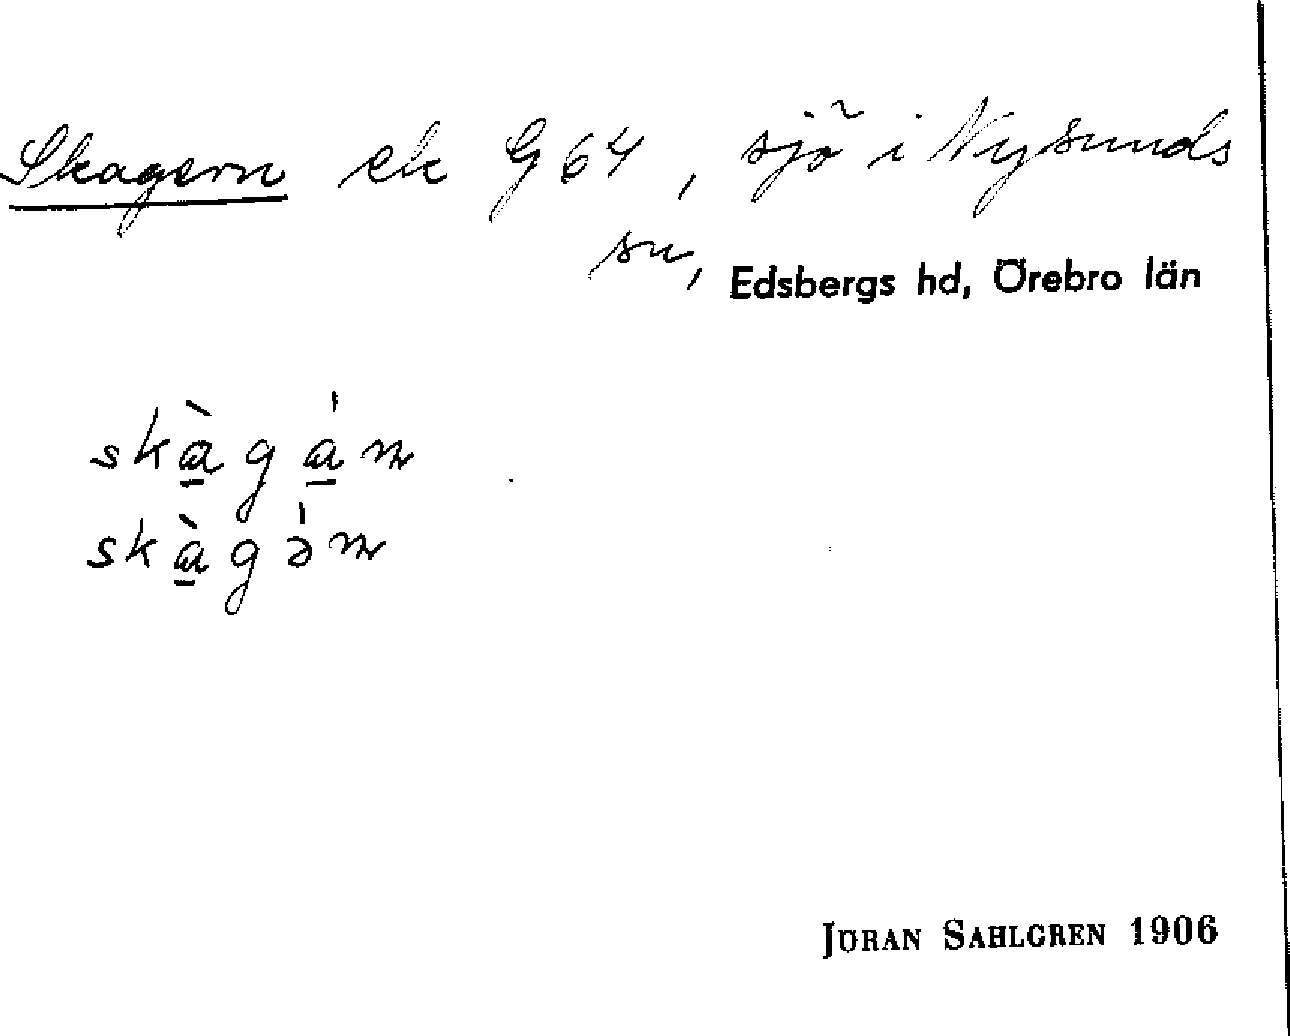 Skagern ek G 64, sjö i Nysunds
sn,
Edsbergs hd, Örebro län
skàgán
skàgə́n
JÖRAN SAHLGREN 1906